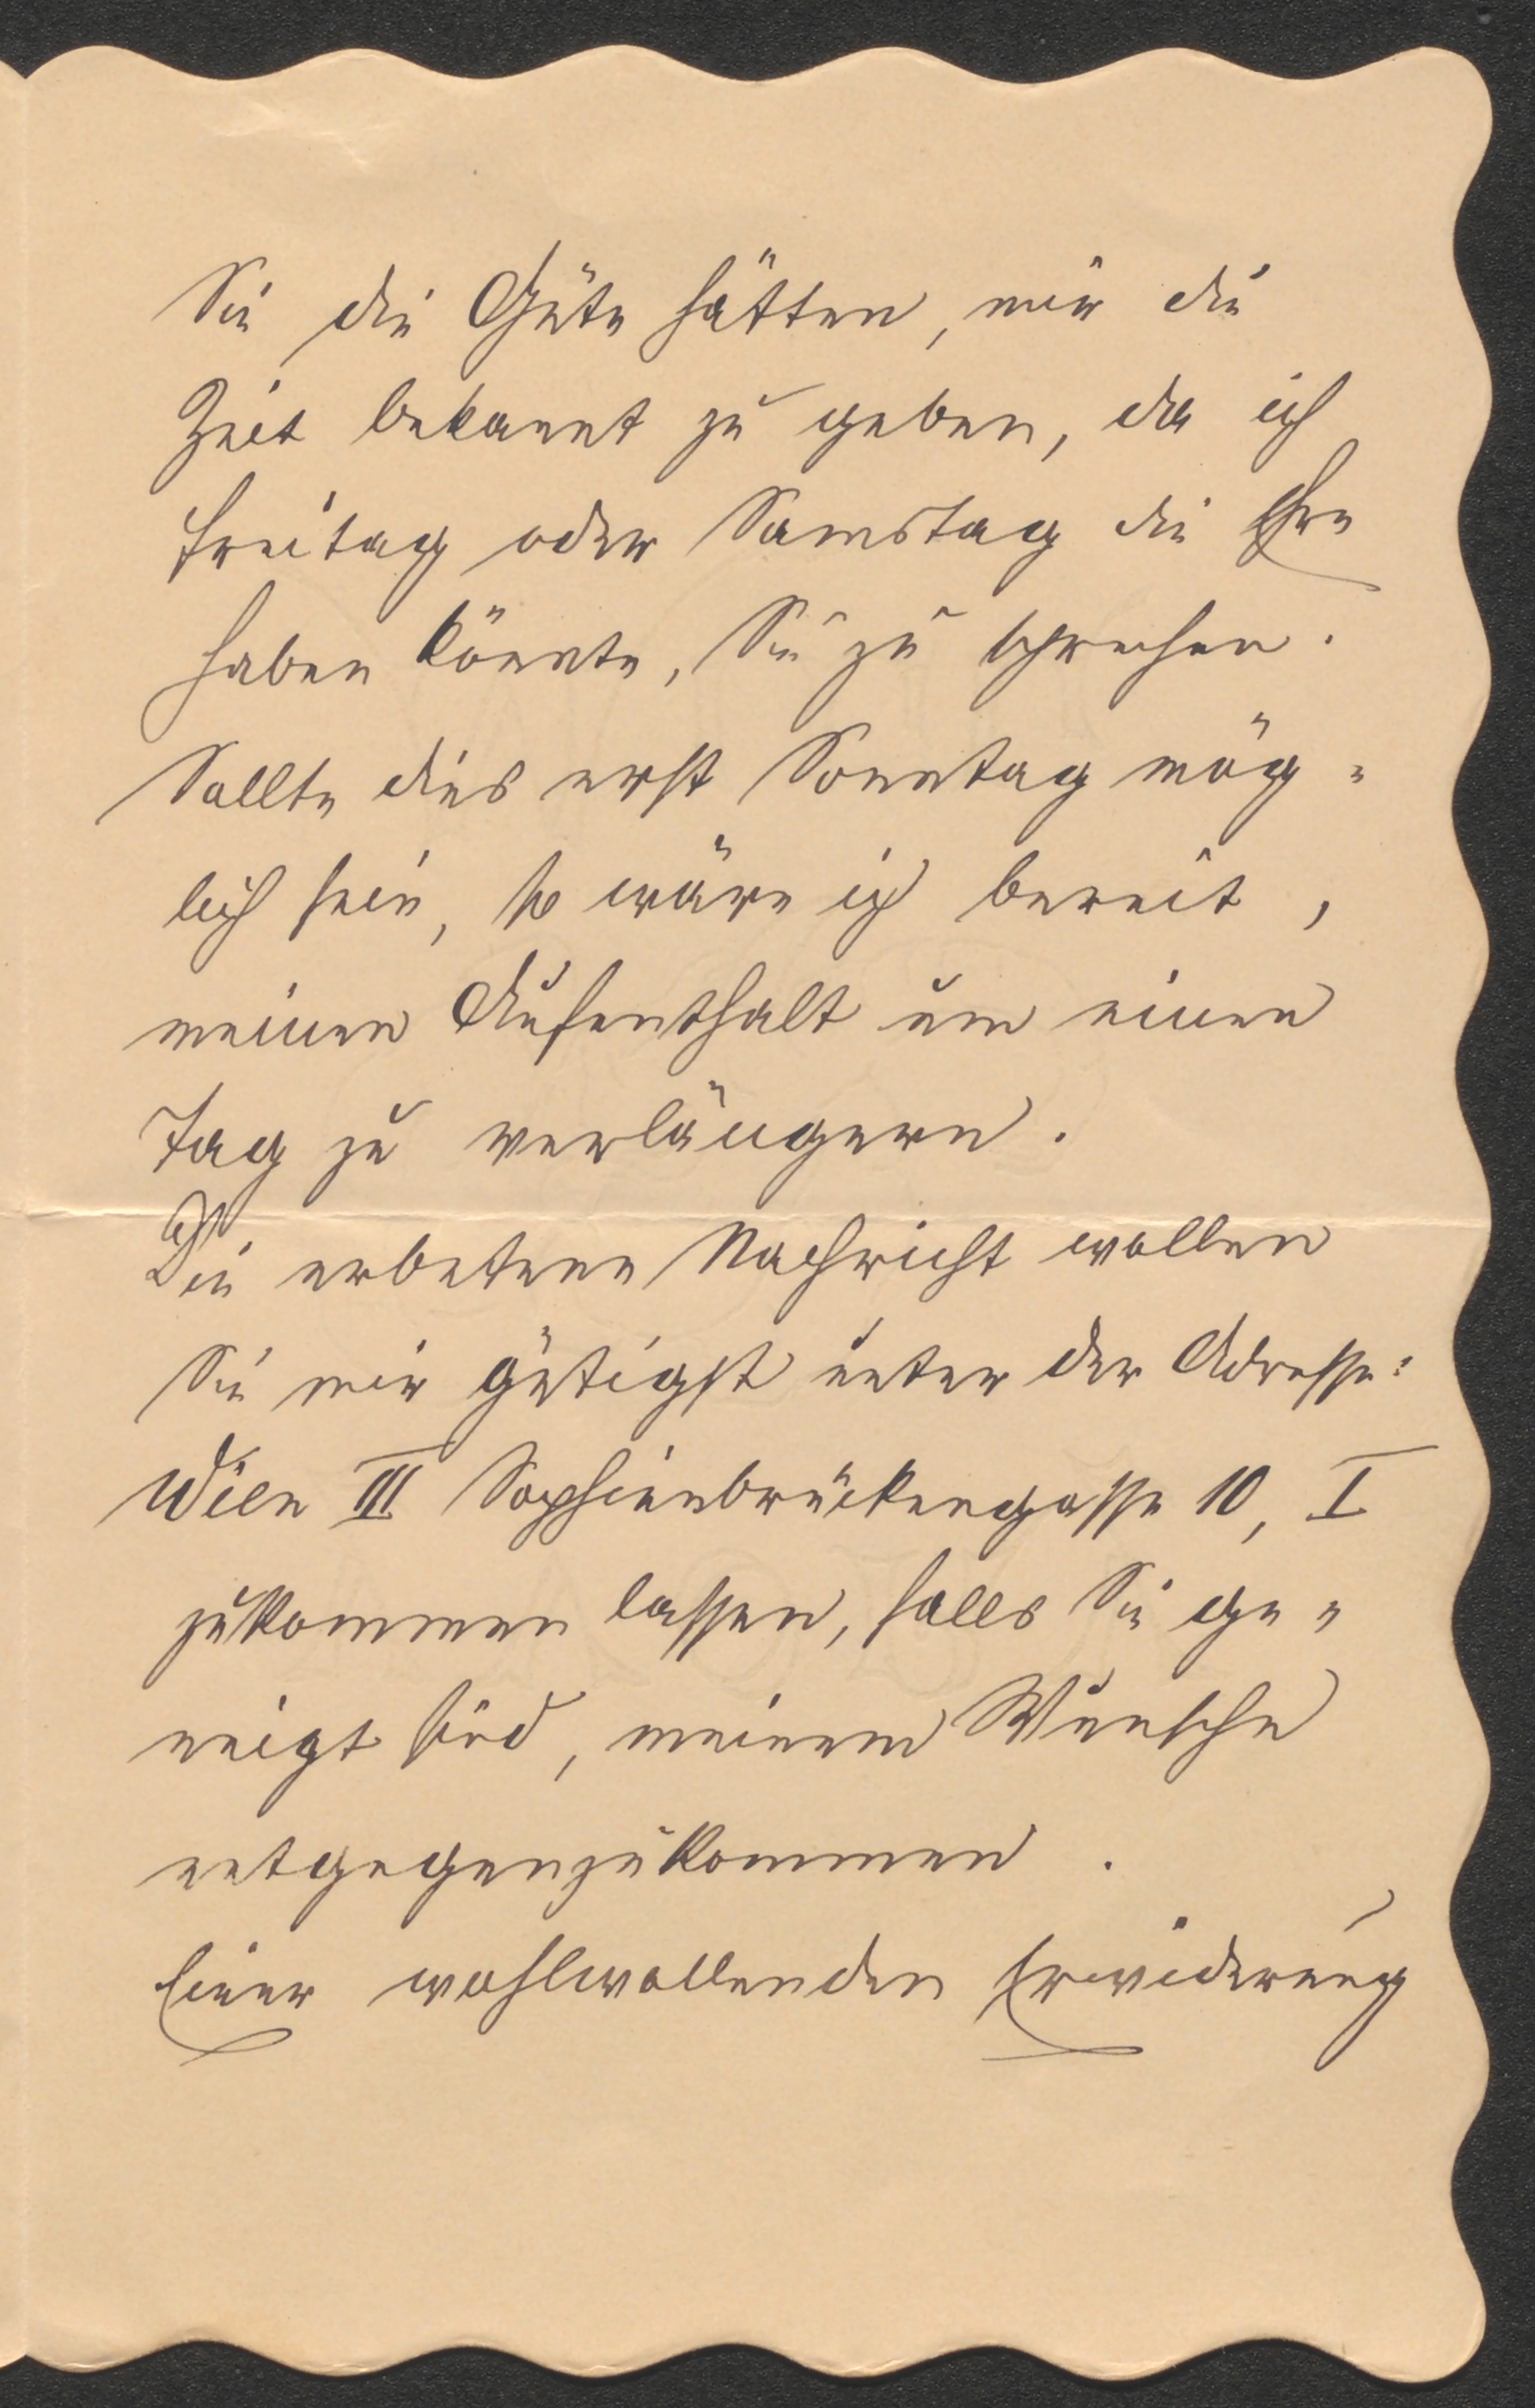 Sie die Güte hätten, mir die
Zeit bekannt zu geben, da ich
Freitag oder Samstag die Ehre
haben könnte, Sie zu sprechen.
Sollte dies erst Sonntag mög=
lich sein, so wäre ich bereit,
meinen Aufenthalt um einen
Tag zu verlängern.
Die erbetene Nachricht wollen
Sie mir gütigst unter der Adresse:
Wien III Sophienbrückengasse 10, I
zukommen lassen, falls Sie ge=
neigt sind, meinem Wunsche
entgegenzukommen.
Einer wohlwollenden Erwiderung